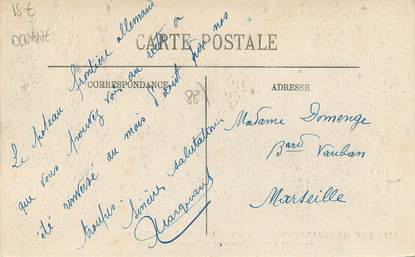 15 €
DOUANE
CARTE POSTALE
CORRESPONDANCE
ADRESSE
(88
Le poteau frontière allemand
que vous trouvez vous au recto a
été renversé au mois d'août par nos
troupes. Sincères salutations
Madame Domenge
Bard Vauban
Marseille